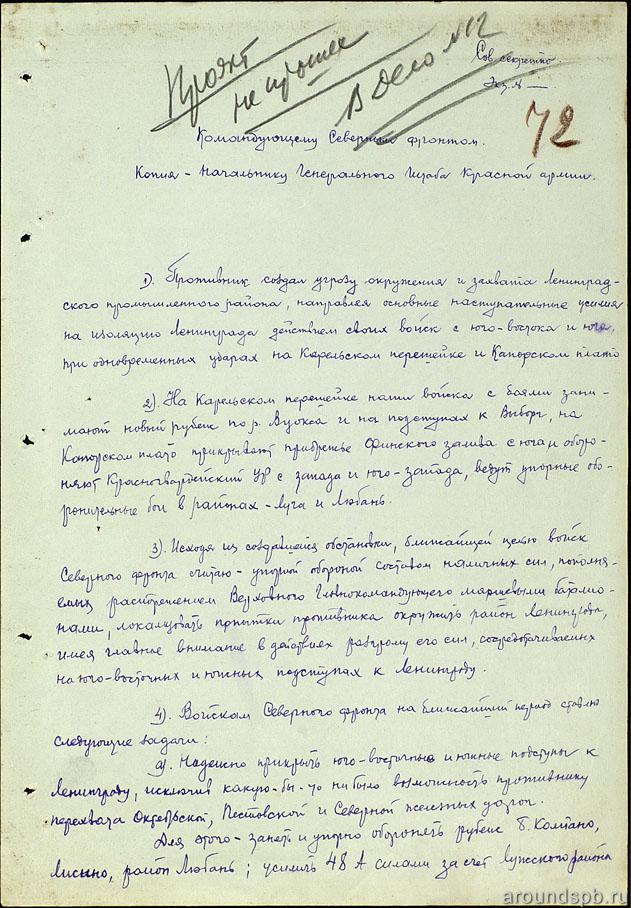 Проэкт
не прошел
В дело №12
Сов. секретно
Экз. № —
72
Командующему Северным фронтом.
Копия – Начальнику Генерального Штаба Красной армии.
1). Противник создал угрозу окружения и захвата Ленинград-
ского промышленного района, направляя основные наступательные усилия
на изоляцию Ленинграда действием своих войск с юго-востока и юга,
при одновременных ударах на Карельском перешейке и Капорском плато
2). На Карельском перешейке наши войска с боями зани-
мают новый рубеж по р. Вуокса и на подступах к Выборг, на
Капорском плато прикрывают прибрежье Финского залива с юга и оборо-
няют Красногвардейский УР с запада и юго-запада, ведут упорные обо-
ронительные бои в районах – Луга и Любань.
3). Исходя из создавшейся обстановки, ближайшей целью войск
Северного фронта считаю – упорной обороной составом наличных сил, пополня-
емых распоряжением Верховного Главнокомандующего маршевыми батальо-
нами, локализовать попытки противника окружить район Ленинграда,
имея главное внимание в действиях разгрому его сил, сосредотачиваемых
на юго-восточных и южных подступах к Ленинграду.
4). Войскам Северного фронта на ближайший период ставлю
следующие задачи:
а). Надежно прикрыть юго-восточные и южные подступы к
Ленинграду, исключив какую-бы-то ни было возможность противнику
перехвата Октябрьской, Пестовской и Северной железных дорог.
Для этого – занять и упорно оборонять рубеж Б. Компано,
Лисино, район Любань; усилить 48 А силами за счет Лужского района
aroundspb.ru